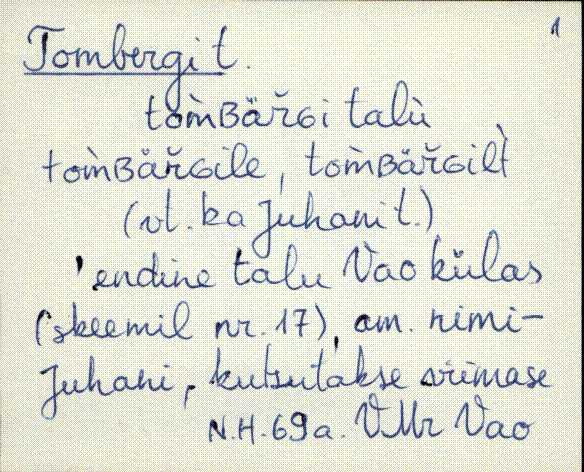 1
Tombergi t.
tom̀ʙäřɢi talù
tom̀ʙäřɢile, tom̀ʙäřɢilt̀
(vt. ka Juhani t.)
'endine talu Vao külas
(skeemil nr. 17), am. nimi-
Juhani, kutsutakse viimase
N.H. 69a. VMr Vao